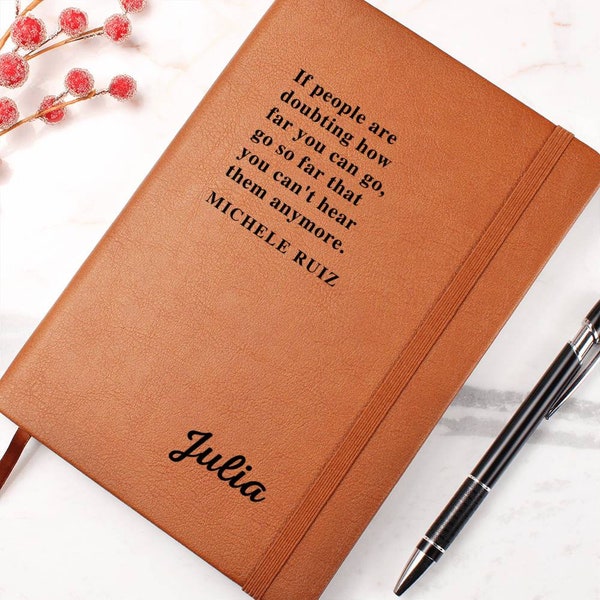 If people are
doubting how
far you can go,
go so far that
you can't hear
them anymore.
MICHELE RUIZ
Julia